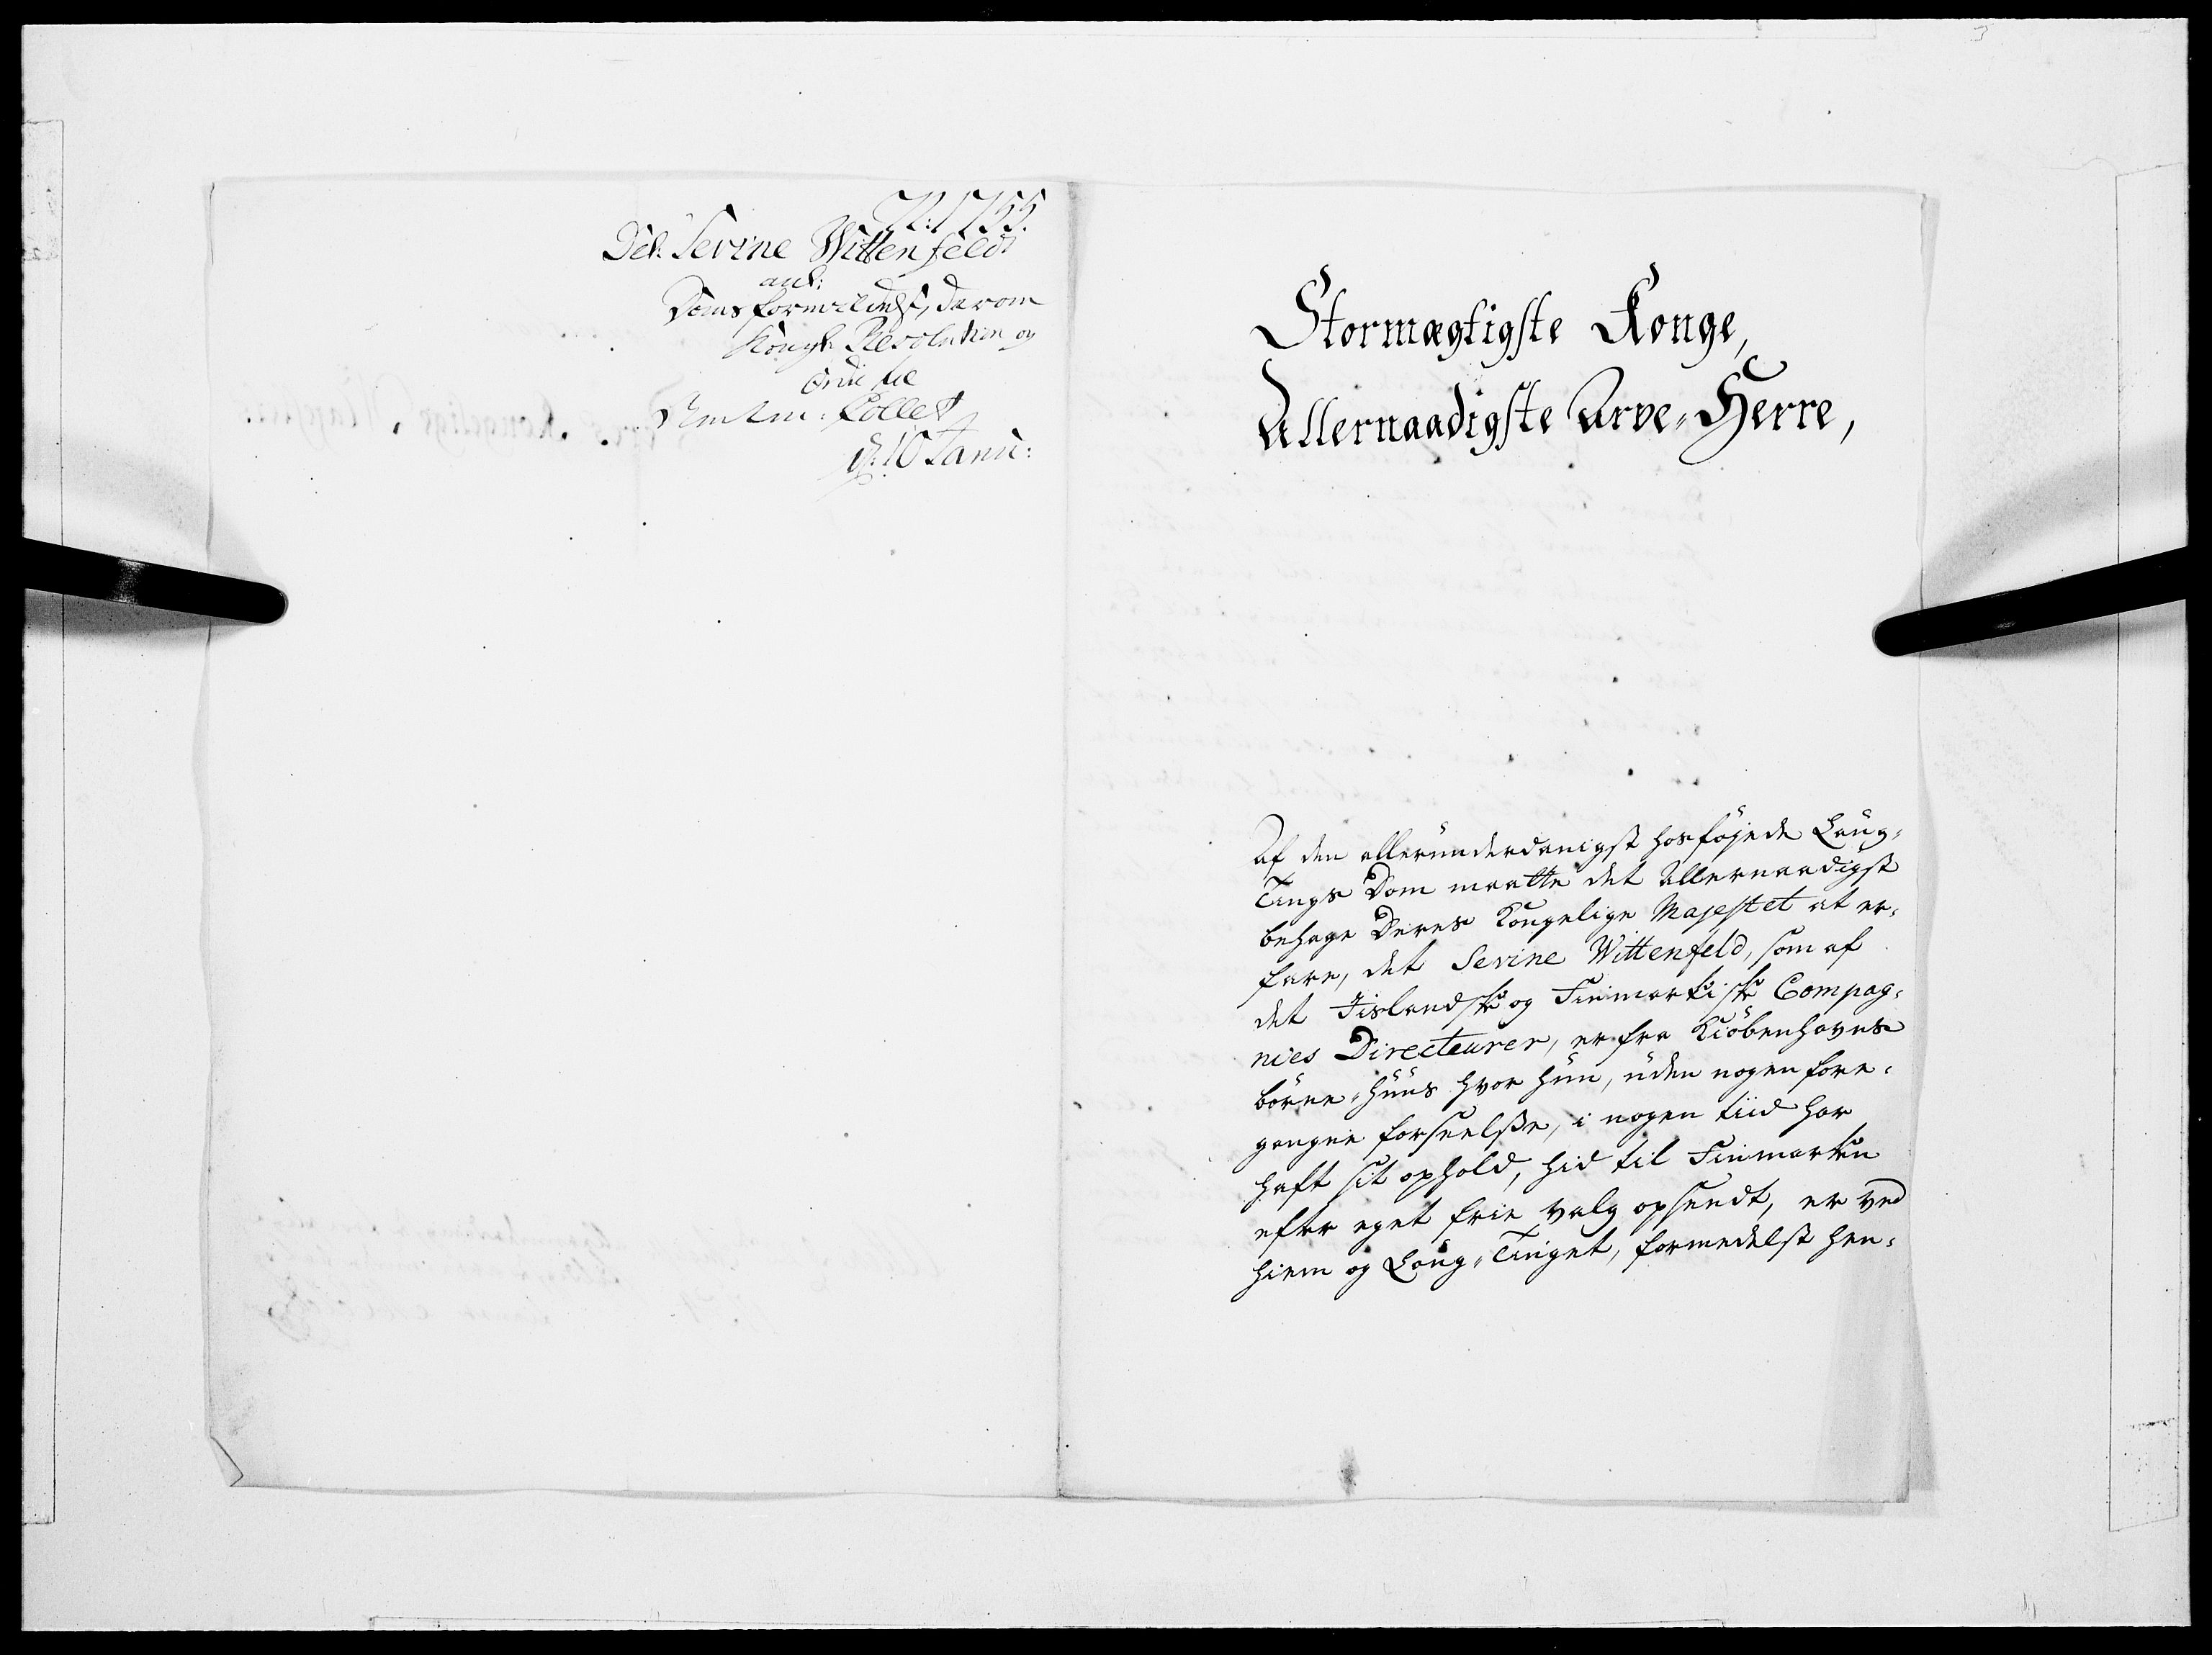 1755.
Del. Sevine Wittenfeldt
ank:
Doms formildelse, derom
Kongl: Resolution og
ordre til
Amtm: Collet
d: 10 Janu:
Stormægtigste Konge,
Allernaadigste Arve-Herre,
Af den allerunderdanigst hosføjede Laug-
Tings Dom maatte det Allernaadigst
behage Deres Kongelige Majestet at er-
fare, det Sevine Wittenfeld, som af
det Jislandske og Finmarkiske Compag-
nies Directeurer, er fra Kiøbenhavns
börne-Huus hvor hun, uden nogen fore-
gangne forseelsse, i nogen tiid har
haft sit ophold, hid til Finmarken
efter eget frie valg opsendt, er ved
Hiem og Laug-Tinget, formedelst hen-